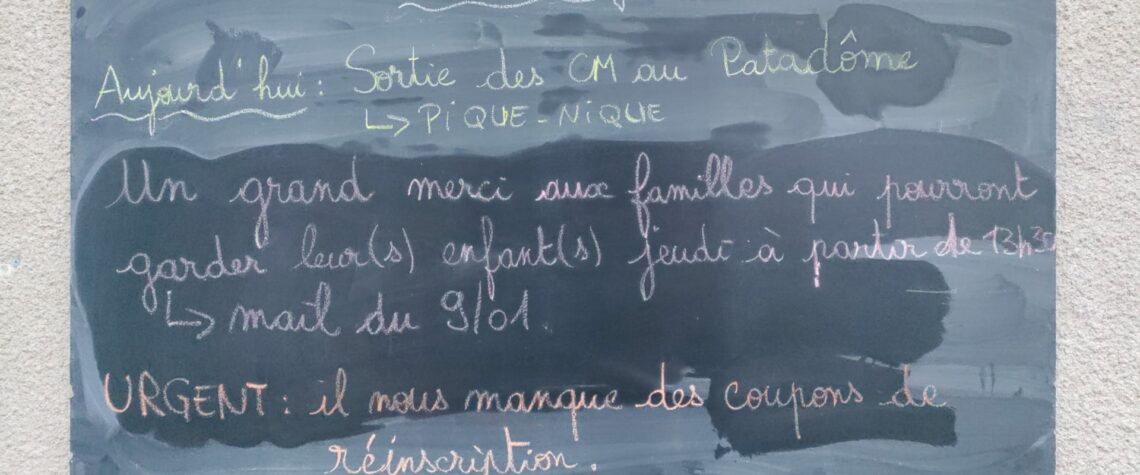 Aujourd'hui : Sortie des CM au Patadôme
↳ PIQUE-NIQUE
Un grand merci aux familles qui pourront
garder leur(s) enfant(s) jeudi à partir de 13h30
↳ mail du 9/01.
URGENT : il nous manque des coupons de
réinscription.